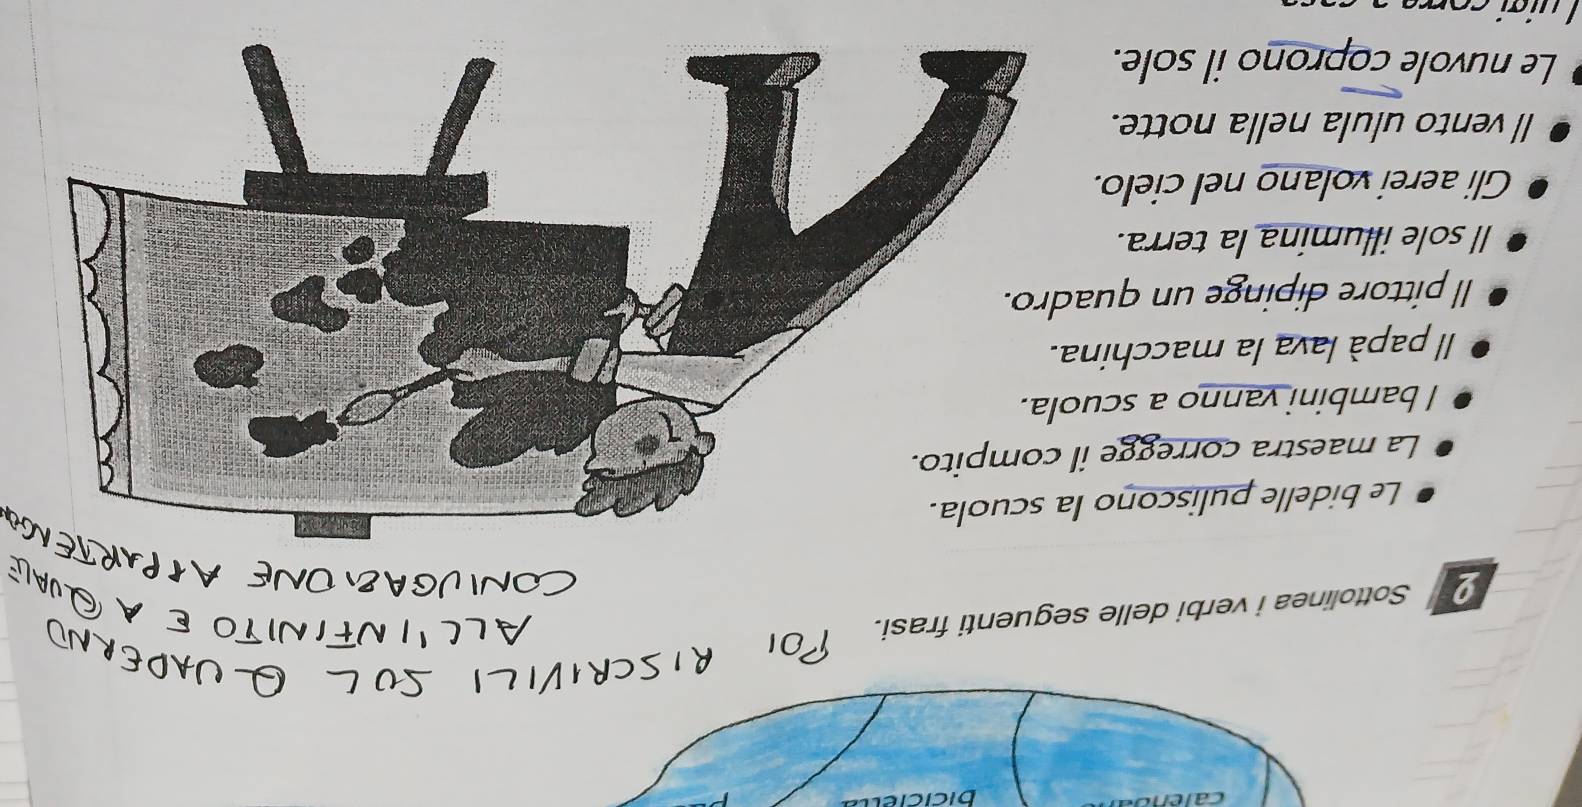 bicicletta
2 Sottolinea i verbi delle seguenti frasi. POI RISCRIVILI SUL QUADERNO
ALL'INFINITO E A QUALE
CONIUGAZIONE APPARTENGO
Le bidelle puliscono la scuola.
La maestra corregge il compito.
I bambini vanno a scuola.
Il papà lava la macchina.
Il pittore dipinge un quadro.
Il sole illumina la terra.
Gli aerei volano nel cielo.
Il vento ulula nella notte.
Le nuvole coprono il sole.
Luigi corre a casa